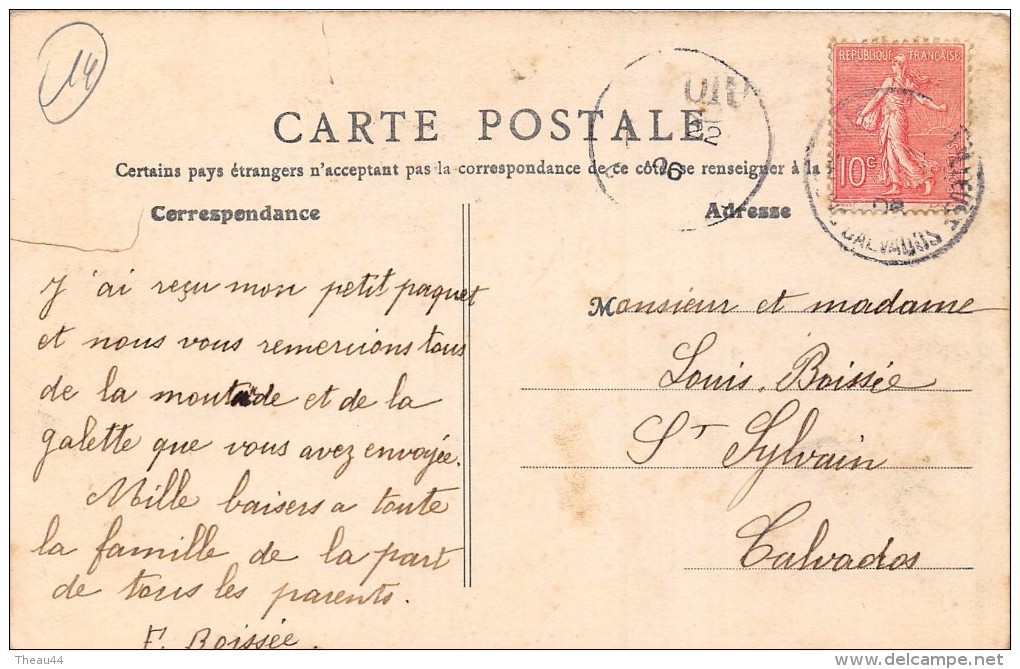 14
RÉPUBLIQUE FRANÇAISE
10c
CALVADOS
06
CARTE POSTALE
Certains pays étrangers n'acceptant pas la correspondance de ce côté, se renseigner à la
Correspondance
Adresse
J'ai reçu mon petit paquet
et nous vous remercions tous
de la moutade et de la
galette que vous avez envoyée.
Mille baisers a toute
la famille de la part
de tous les parents.
F. Boissée.
Monsieur et madame
Louis Boissée
St Sylvain
Calvados
Theau44